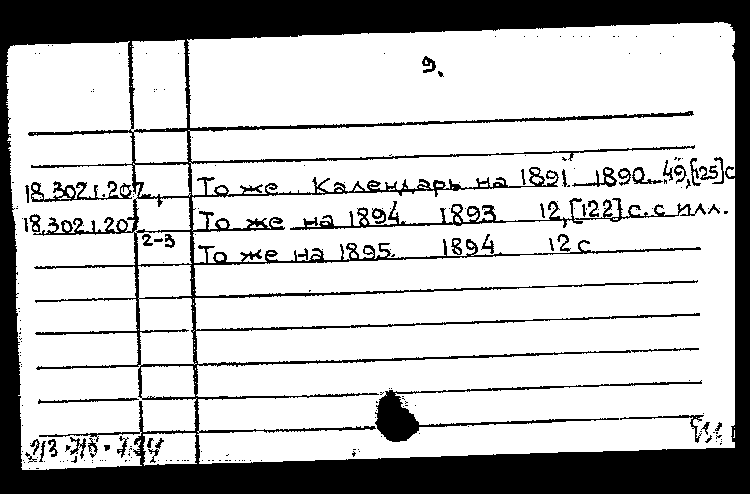 9.
18.302.1.207 1 То же. Календарь на 1891 1890. 49,[125]с
18.302.1.207 2-3 То же на 1894. 1893 12,[122] с. с илл.
То же на 1895. 1894. 12 с